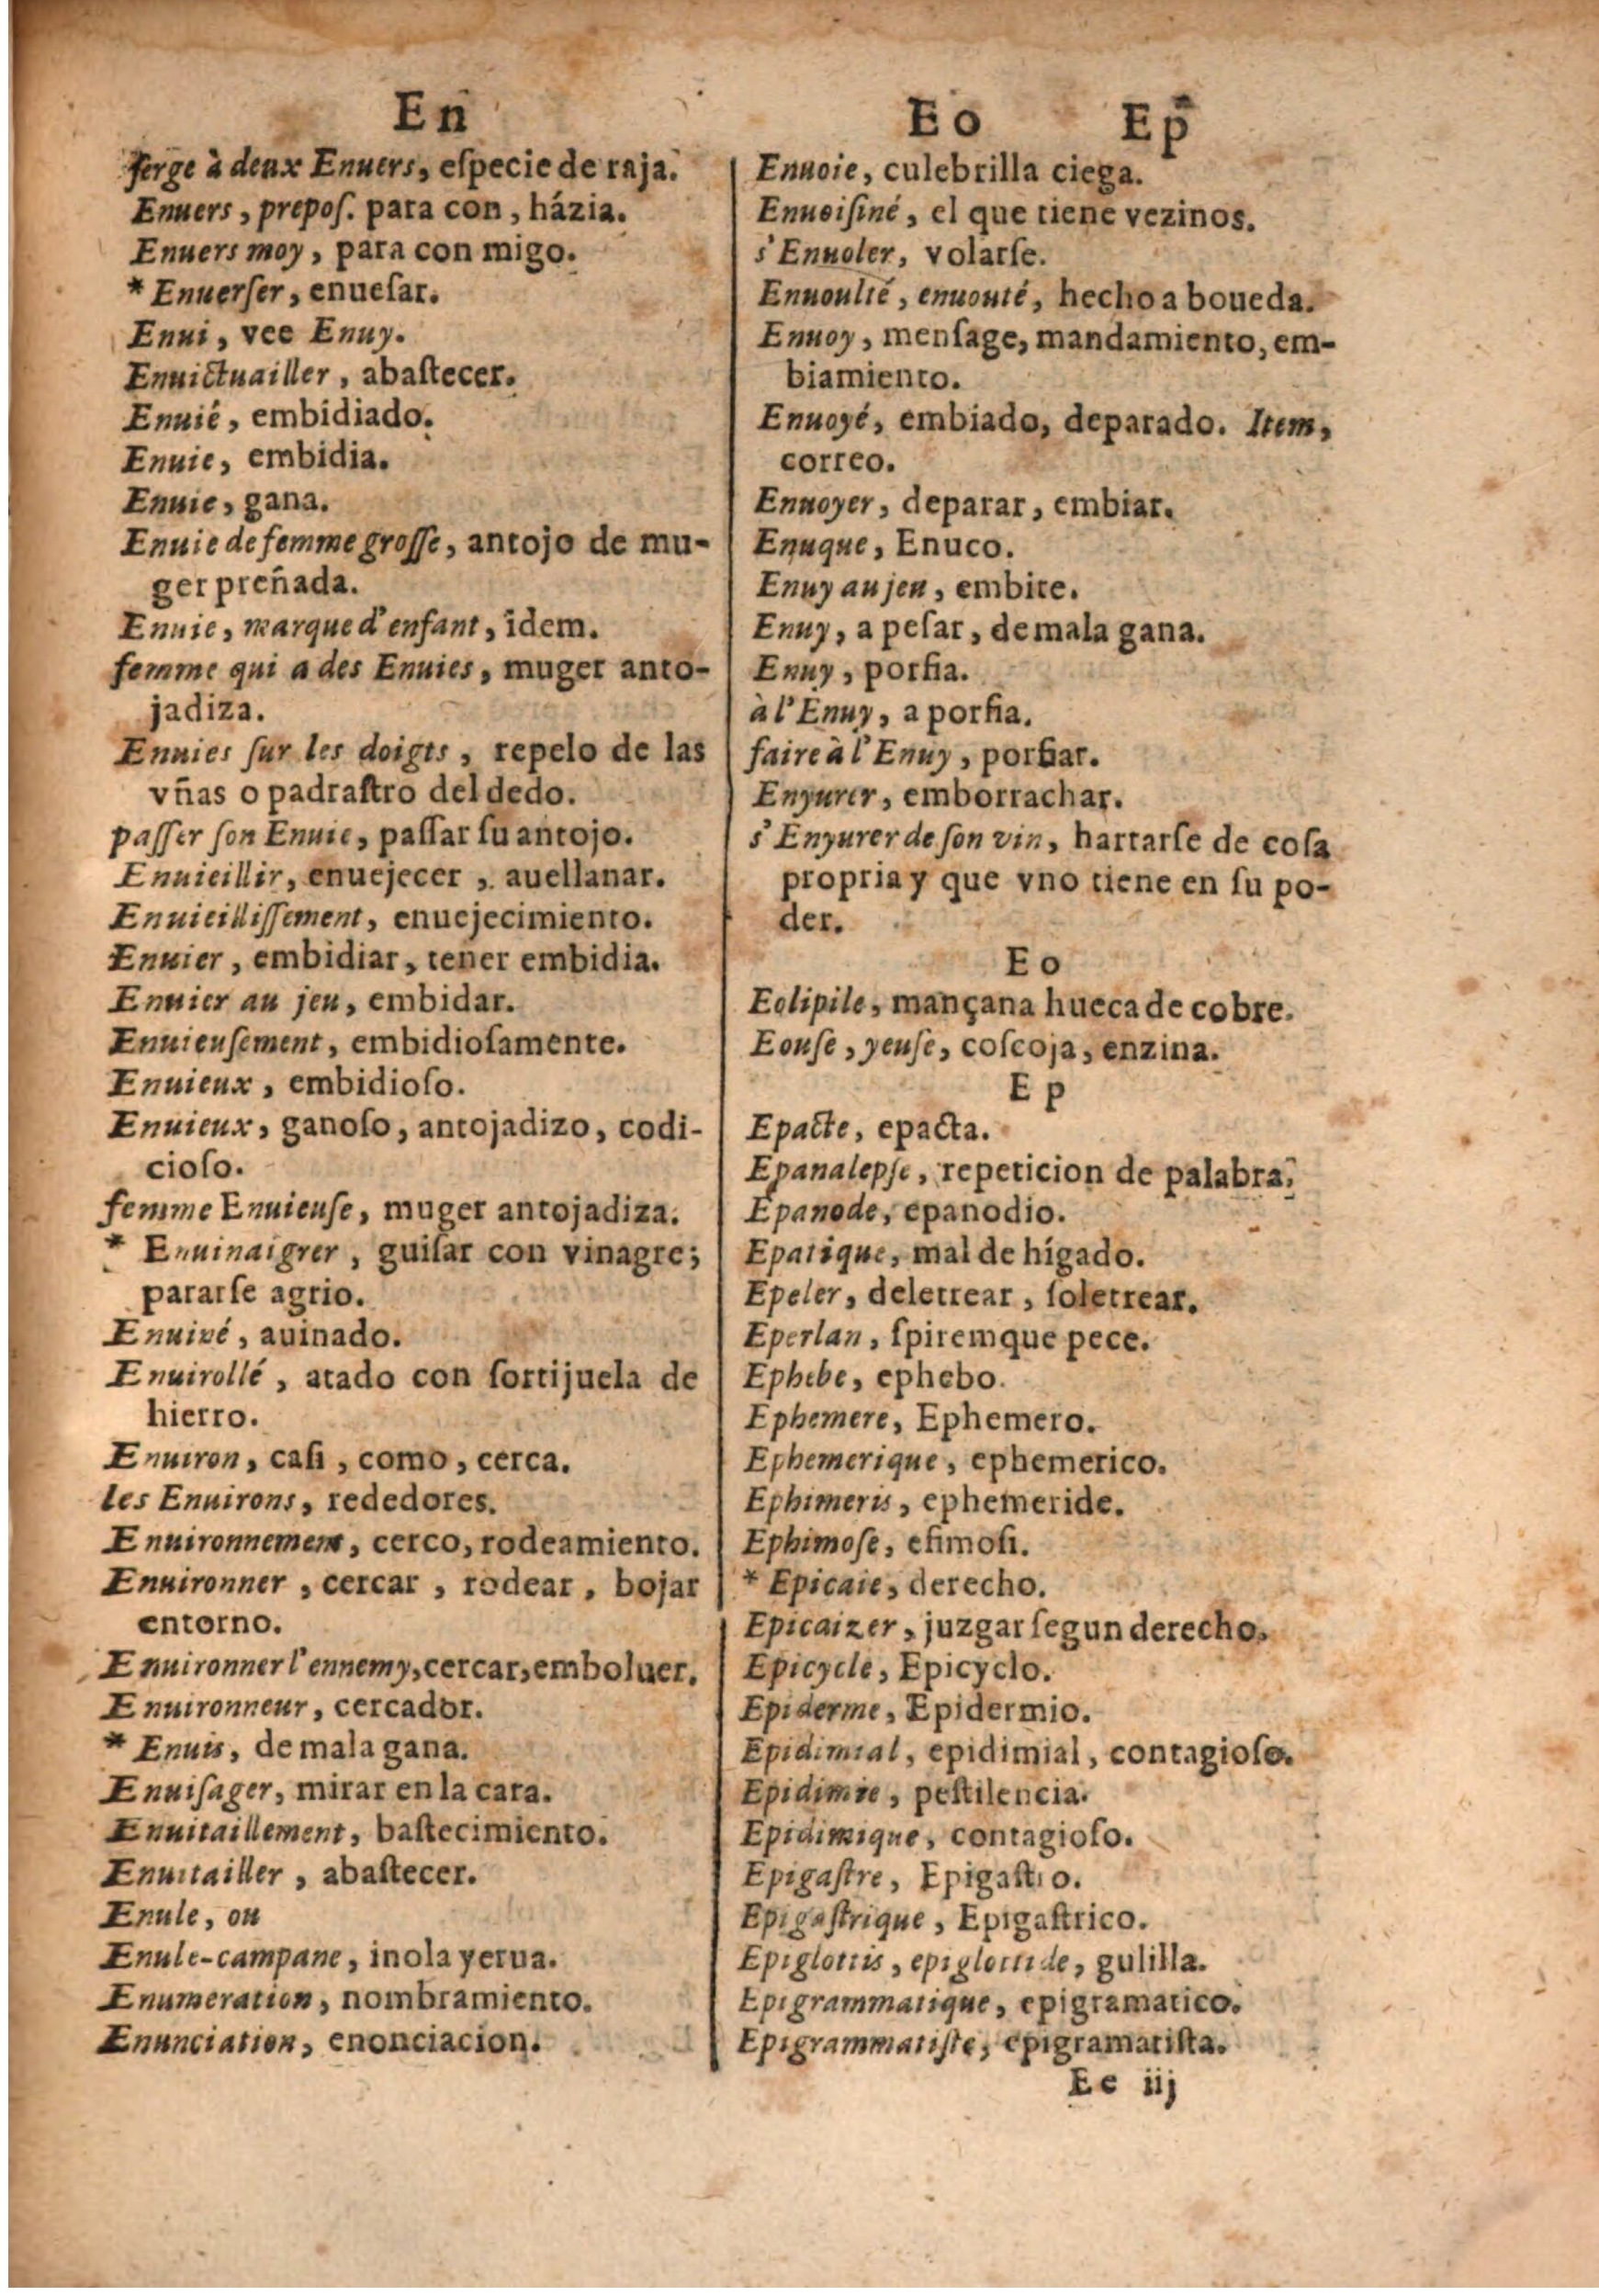 En
ſerge à deux Enuers, eſpecie de raja.
Enuers, prepoſ. para con, házia.
Enuers moy, para con migo.
* Enuerſer, enueſar.
Enui, vee Enuy.
Enuictuailler, abaſtecer.
Enuié, embidiado.
Enuie, embidia.
Enuie, gana.
Enuie de femme groſſe, antojo de mu-
ger preñada.
Enuie, marque d'enfant, idem.
femme qui a des Enuies, muger anto-
jadiza.
Enuies ſur les doigts, repelo de las
vñas o padraſtro del dedo.
paſſer ſon Enuie, paſſar ſu antojo.
Enuieillir, enuejecer, auellanar.
Enuieilliſſement, enuejecimiento.
Enuier, embidiar, tener embidia.
Enuier au jeu, embidar.
Enuieuſement, embidioſamente.
Enuieux, embidioſo.
Enuieux, ganoſo, antojadizo, codi-
cioſo.
femme Enuieuſe, muger antojadiza.
* Enuinaigrer, guiſar con vinagre;
pararſe agrio.
Enuiné, auinado.
Enuirollé, atado con ſortijuela de
hierro.
Enuiron, caſi, como, cerca.
les Enuirons, rededores.
Enuironnement, cerco, rodeamiento.
Enuironner, cercar, rodear, bojar
entorno.
Enuironner l'ennemy, cercar, emboluer.
Enuironneur, cercador.
* Enuis, de mala gana.
Enuiſager, mirar en la cara.
Enuitaillement, baſtecimiento.
Enuitailler, abaſtecer.
Enule, ou
Enule-campane, inola yerua.
Enumeration, nombramiento.
Enunciation, enonciacion.
Eo Ep
Enuoie, culebrilla ciega.
Enuoiſiné, el que tiene vezinos.
s'Enuoler, volarſe.
Enuoulté, enuouté, hecho a boueda.
Enuoy, menſage, mandamiento, em-
biamiento.
Enuoyé, embiado, deparado. Item,
correo.
Enuoyer, deparar, embiar.
Enuque, Enuco.
Enuy au jeu, embite.
Enuy, a peſar, de mala gana.
Enuy, porfia.
à l'Enuy, a porfia.
faire à l'Enuy, porfiar.
Enyurer, emborrachar.
s'Enyurer de ſon vin, hartarſe de coſa
propria y que vno tiene en ſu po-
der.
Eo
Eolipile, mançana hueca de cobre.
Eouſe, yeuſe, coſcoja, enzina.
Ep
Epacte, epacta.
Epanalepſe, repeticion de palabra.
Epanode, epanodio.
Epatique, mal de hígado.
Epeler, deletrear, ſoletrear.
Eperlan, ſpiremque pece.
Ephebe, ephebo.
Ephemere, Ephemero.
Ephemerique, ephemerico.
Ephimeris, ephemeride.
Ephimoſe, efimoſi.
* Epicaie, derecho.
Epicaizer, juzgar ſegun derecho.
Epicycle, Epicyclo.
Epiderme, Epidermio.
Epidimial, epidimial, contagioſo.
Epidimie, peſtilencia.
Epidimique, contagioſo.
Epigaſtre, Epigaſtro.
Epigaſtrique, Epigaſtrico.
Epiglottis, epiglottide, gulilla.
Epigrammatique, epigramatico.
Epigrammatiſte, epigramatiſta.
Ee iij